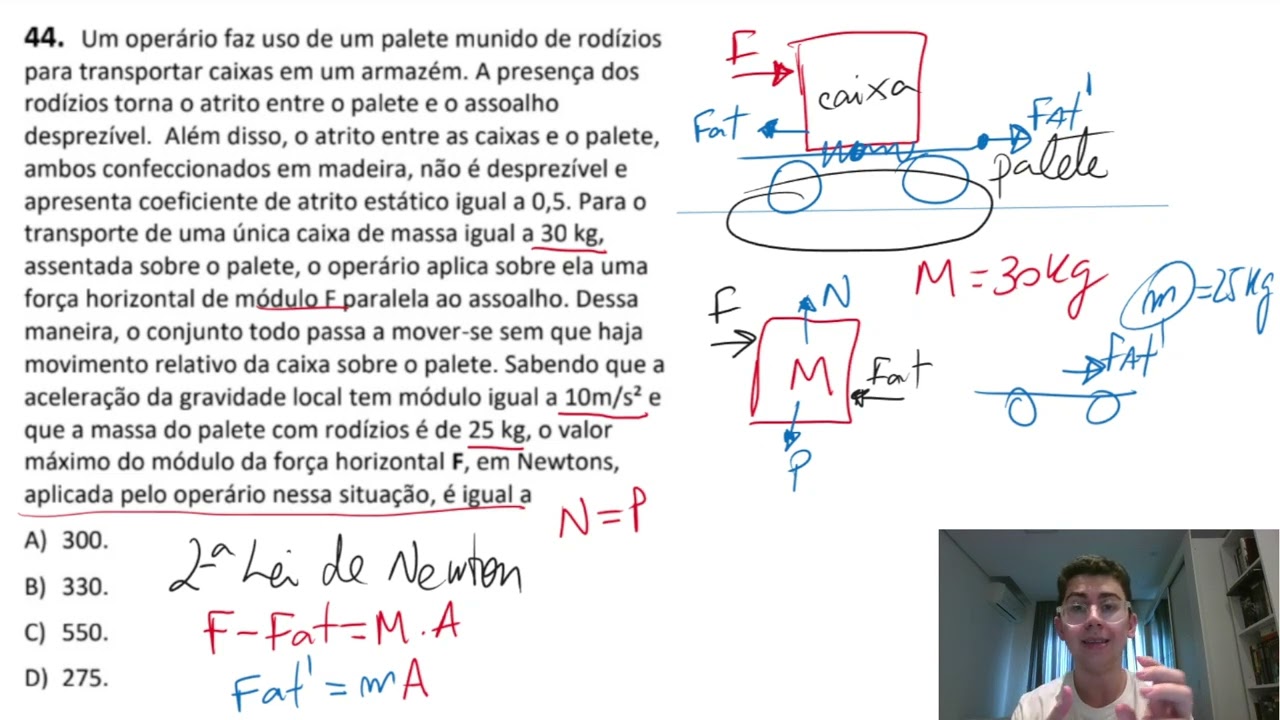 44. Um operário faz uso de um palete munido de rodízios
para transportar caixas em um armazém. A presença dos
rodízios torna o atrito entre o palete e o assoalho
desprezível. Além disso, o atrito entre as caixas e o palete,
ambos confeccionados em madeira, não é desprezível e
apresenta coeficiente de atrito estático igual a 0,5. Para o
transporte de uma única caixa de massa igual a 30 kg,
assentada sobre o palete, o operário aplica sobre ela uma
força horizontal de módulo F paralela ao assoalho. Dessa
maneira, o conjunto todo passa a mover-se sem que haja
movimento relativo da caixa sobre o palete. Sabendo que a
aceleração da gravidade local tem módulo igual a 10m/s² e
que a massa do palete com rodízios é de 25 kg, o valor
máximo do módulo da força horizontal F, em Newtons,
aplicada pelo operário nessa situação, é igual a
A) 300.
B) 330.
C) 550.
D) 275.
N=P
2ª Lei de Newton
F-Fat=M.A
Fat'=mA
F
caixa
Fat
FAt'
palete
M=30kg
m=25kg
F
N
M
Fat
P
FAt'